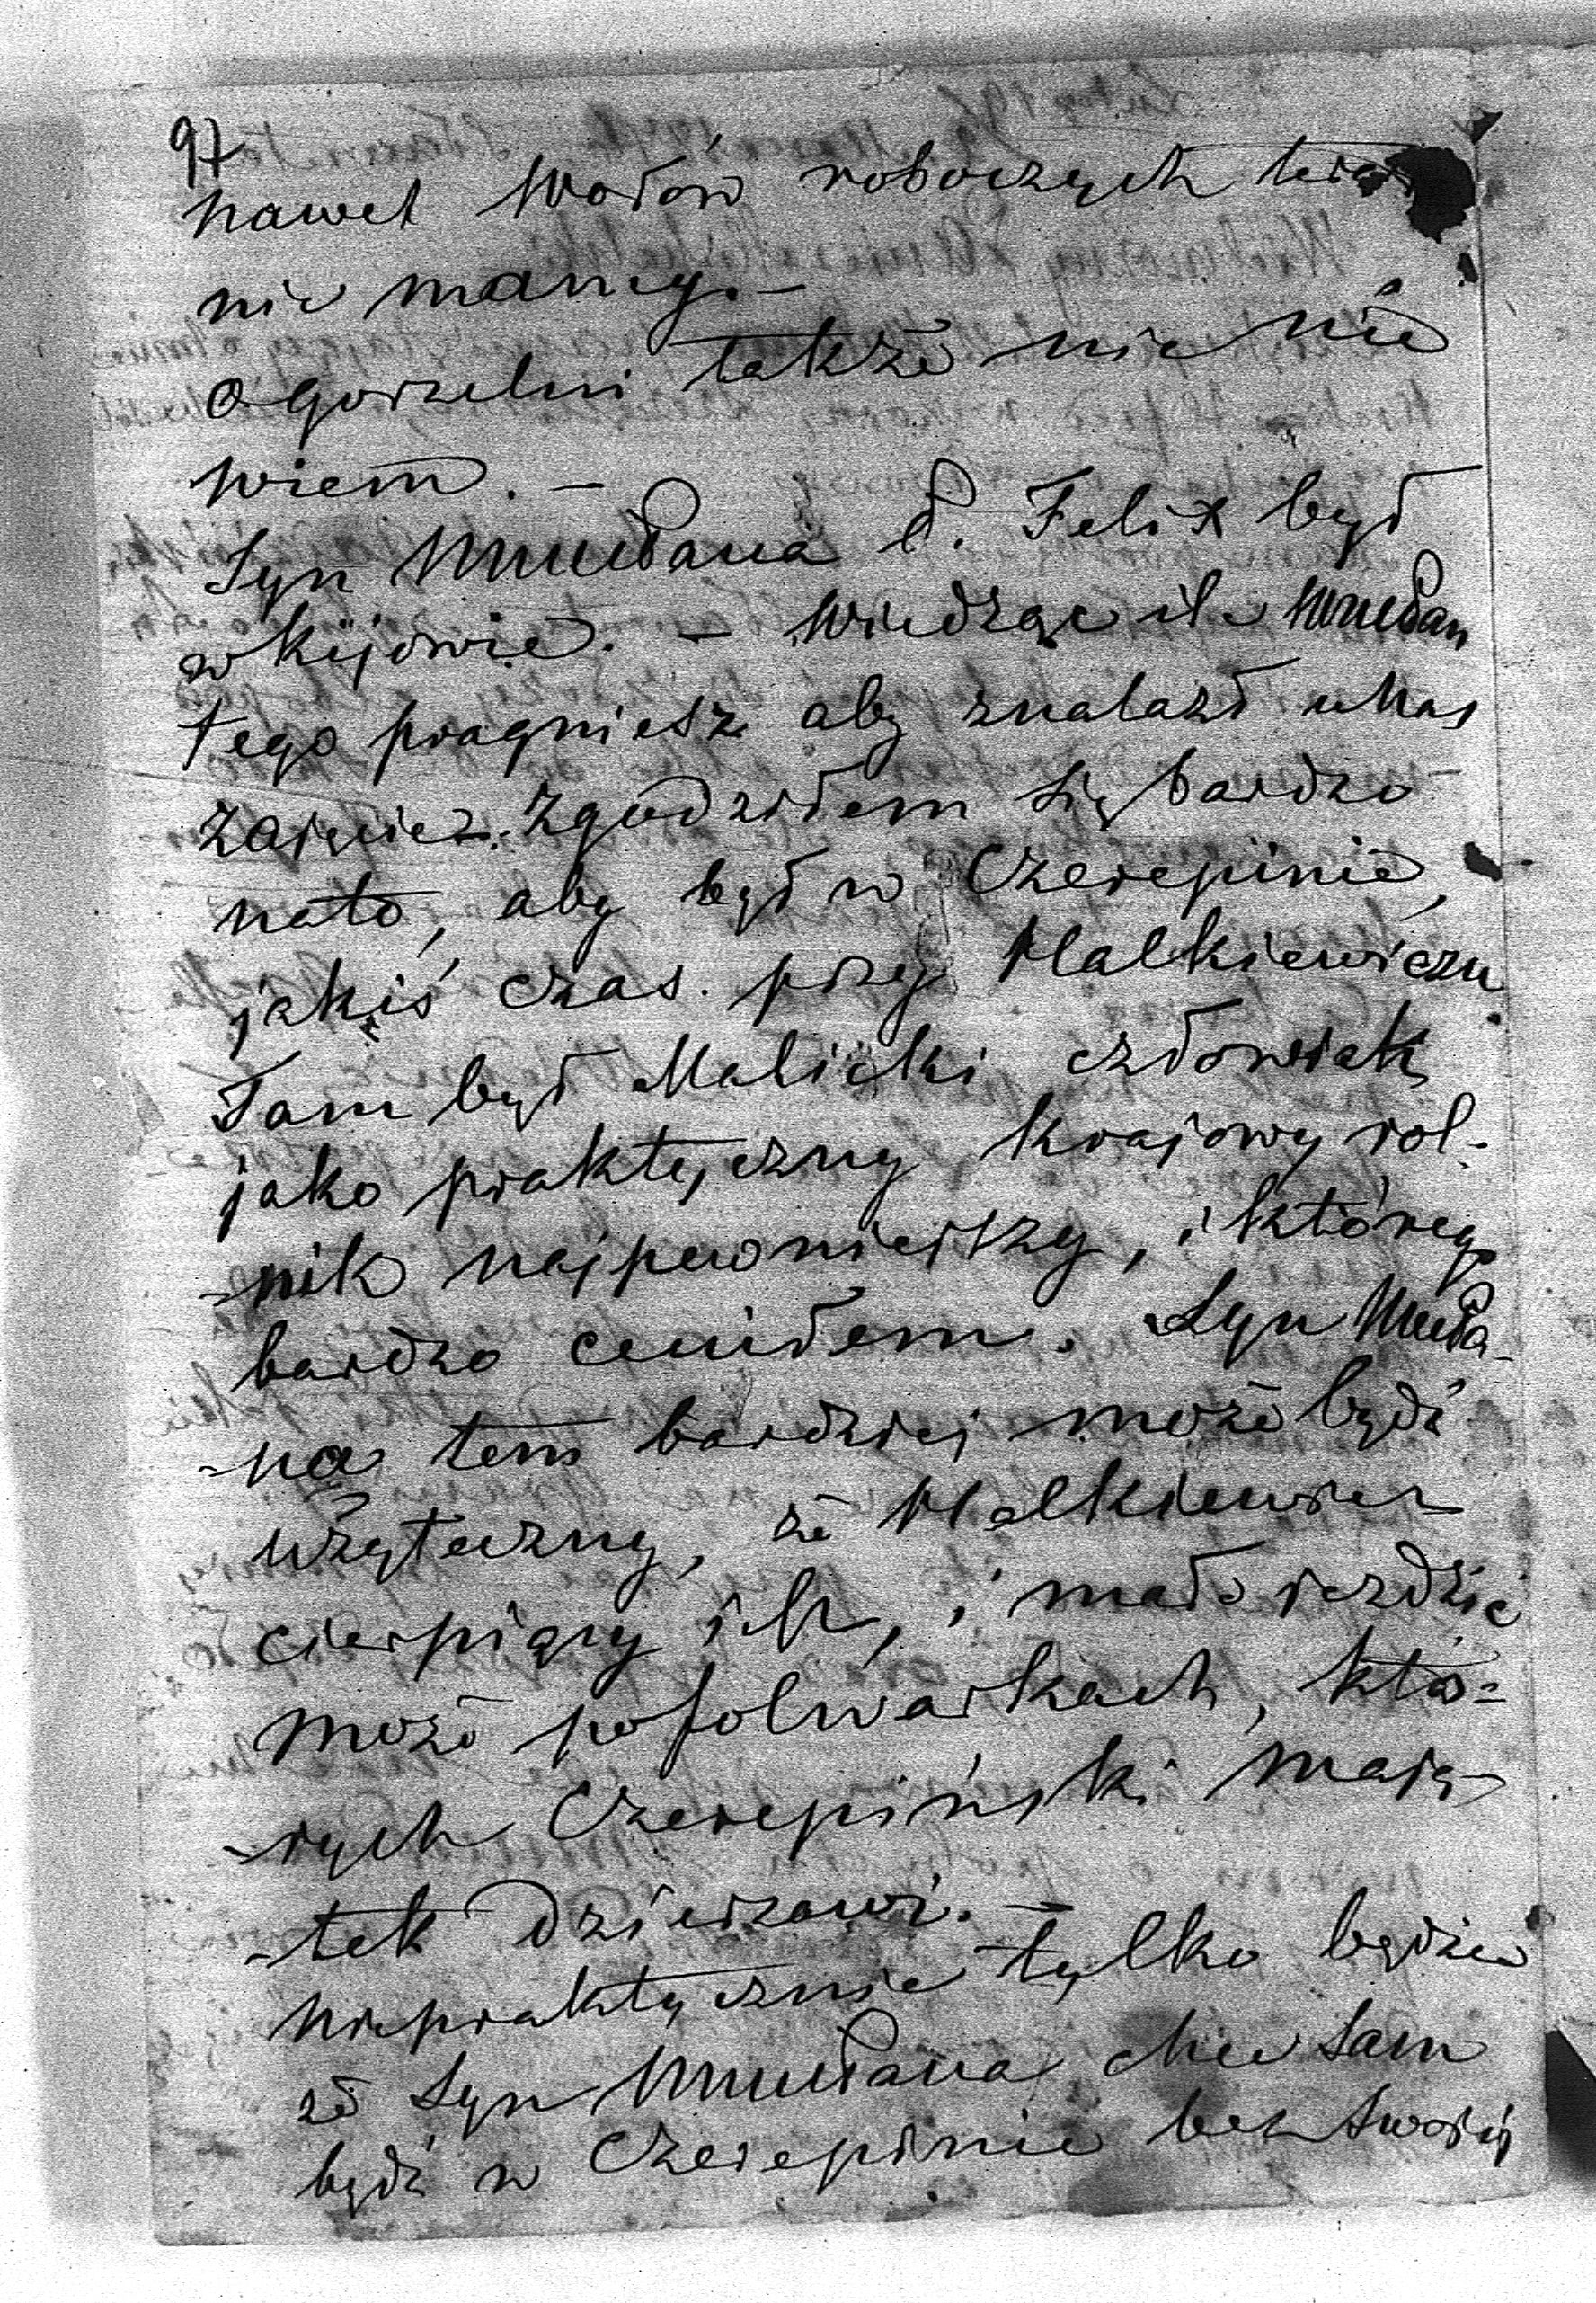 97
nawet wołów roboczych
nie mamy. —
o gorzelni także nic nie
wiem. —
Syn WMudana P. Felix był
w kijowie. — Wiedząc ile WMudan
tego pragniesz aby znalazł u Nas
zajęcie. Zgodziłem się bardzo
nato, aby był w Czerepinie,
jakiś czas. przy Malkiewiczu
Tam był Malicki człowiek
jako praktyczny krajowy rol-
-nik najpewniejszy, i którego
bardzo ceniłem. Syn Muda-
-na tem bardziej może będź
użyteczny, że Malkiewicz
cierpiący jest, i mało jeździć
może pofolwarkach, któ=
-rych Czerepiński mają-
-tek dzierżawi. —
niepraktycznie tylko będzie
że Syn WMudana chce sam
będź w Czerepinie bez swojej